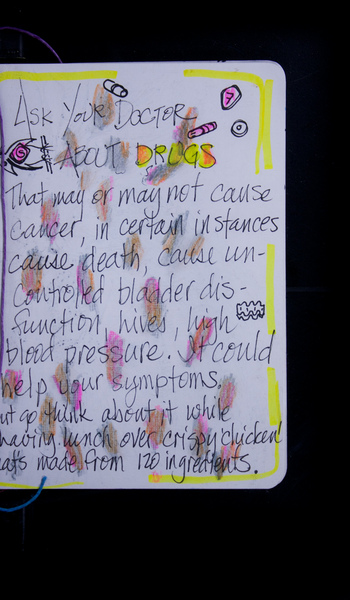 Ask Your Doctor
About DRUGS
That may or may not cause
cancer, in certain instances
cause death, cause un-
controlled bladder dis-
function, hives, high
blood pressure. It could
help your symptoms.
ut go think about it while
having lunch over crispy chicken
ats made from 120 ingredients.